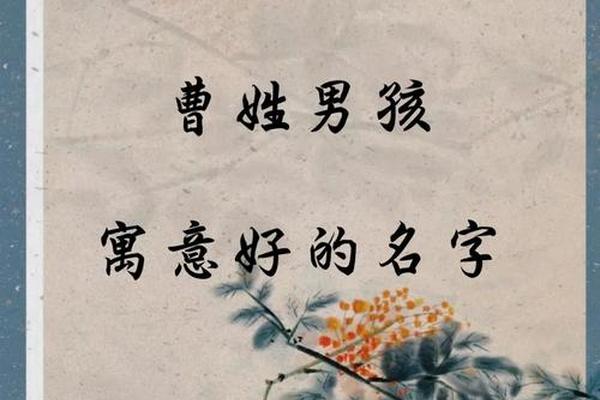 曹姓男孩
寓意好的名字